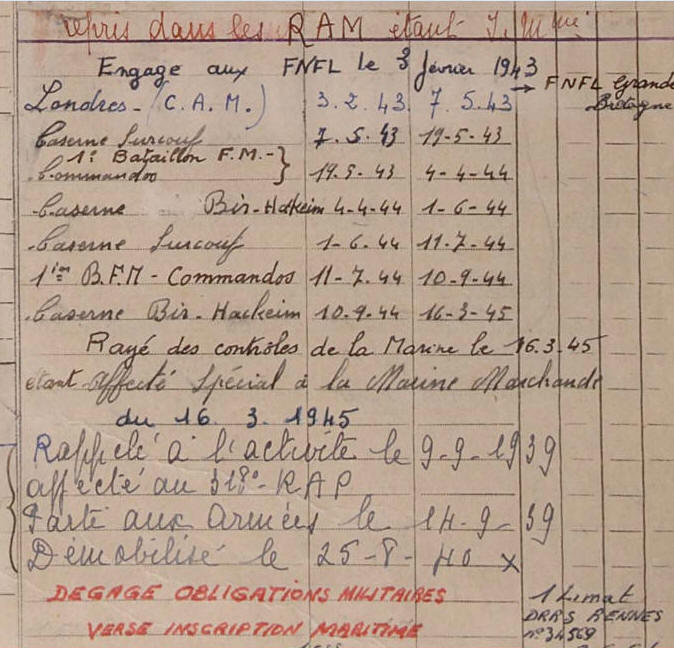 repris dans les RAM étant
Engage aux FNFL le 3 février 1943
→ FNFL Grande Bretagne
Londres - (C.A.M.) 3.2.43 7.5.43
Caserne Surcouf 7.5.43 19-5-43
1er Bataillon F.M. -
Commandos } 19.5-43 4-4-44
Caserne Bir-Hakeim 4-4-44 1-6-44
Caserne Surcouf 1-6-44 11-7-44
1ier B.F.M - Commandos 11-7.44 10-9-44
Caserne Bir-Hackeim 10.9-44 16-3-45
Rayé des contrôles de la Marine le 16.3.45
étant affecté Spécial à la Marine Marchande
du 16. 3. 1945
Rappelé à l'activité le 9-9-1939
affecté au RAP
Parti aux Armées le 14-9-39
Démobilisé le 25-8-40 x
DEGAGE OBLIGATIONS MILITAIRES
VERSE INSCRIPTION MARITIME
DRRS RENNES
n°34569